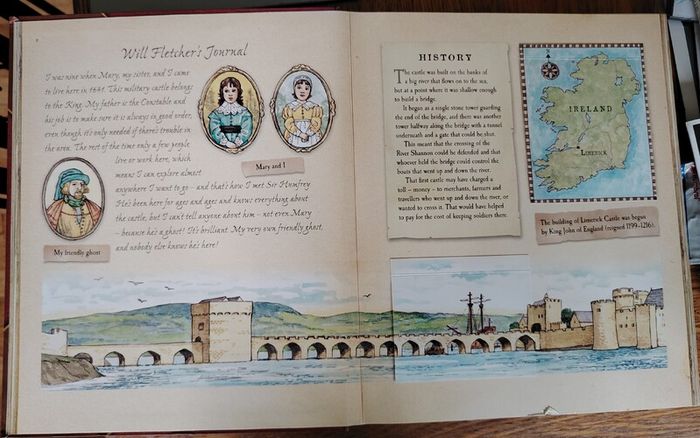 Will Fletcher's Journal
I was nine when Mary, my sister, and I came
to live here in 1641. This military castle belongs
to the King. My father is the Constable and
his job is to make sure it is always in good order,
even though it's only needed if there's trouble in
the area. The rest of the time only a few people
live or work here, which
means I can explore almost
anywhere I want to go – and that's how I met Sir Humfrey.
He's been here for ages and ages and knows everything about
the castle, but I can't tell anyone about him – not even Mary
– because he's a ghost! It's brilliant. My very own friendly ghost,
and nobody else knows he's here!
Mary and I
My friendly ghost
HISTORY
The castle was built on the banks of
a big river that flows on to the sea,
but at a point where it was shallow enough
to build a bridge.
It began as a single stone tower guarding
the end of the bridge, and there was another
tower halfway along the bridge with a tunnel
underneath and a gate that could be shut.
This meant that the crossing of the
River Shannon could be defended and that
whoever held the bridge could control the
boats that went up and down the river.
That first castle may have charged a
toll – money – to merchants, farmers and
travellers who went up and down the river, or
wanted to cross it. That would have helped
to pay for the cost of keeping soldiers there.
IRELAND
LIMERICK
The building of Limerick Castle was begun
by King John of England (reigned 1199–1216).